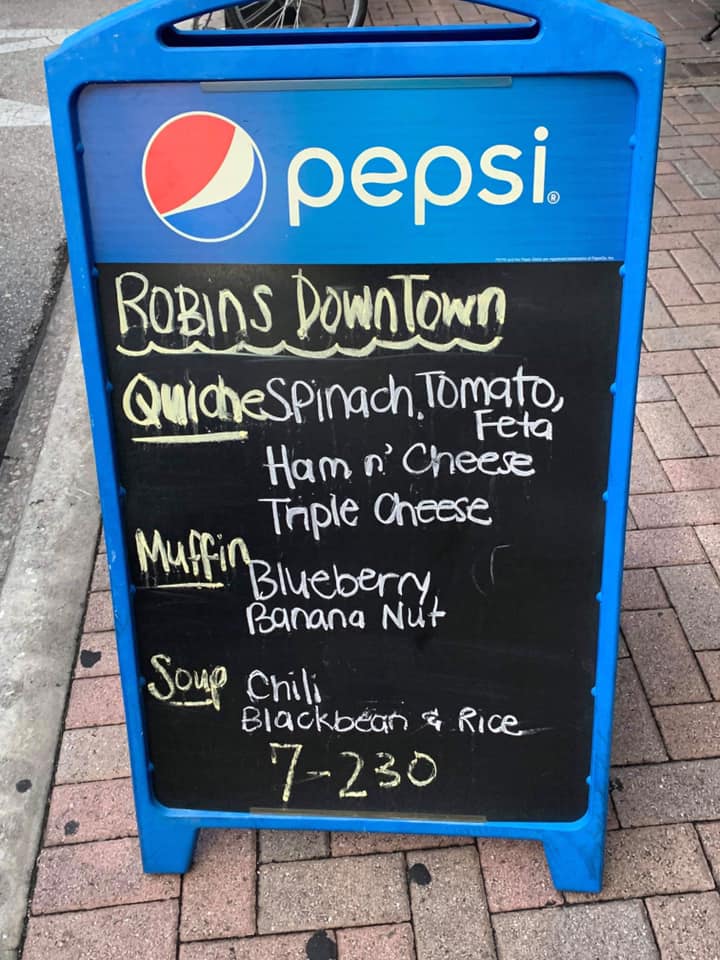 pepsi®
ROBINS DOWNTOWN
Quiche Spinach, Tomato,
Feta
Ham n' Cheese
Triple Cheese
Muffin
Blueberry
Banana Nut
Soup Chili
Blackbean & Rice
7-230